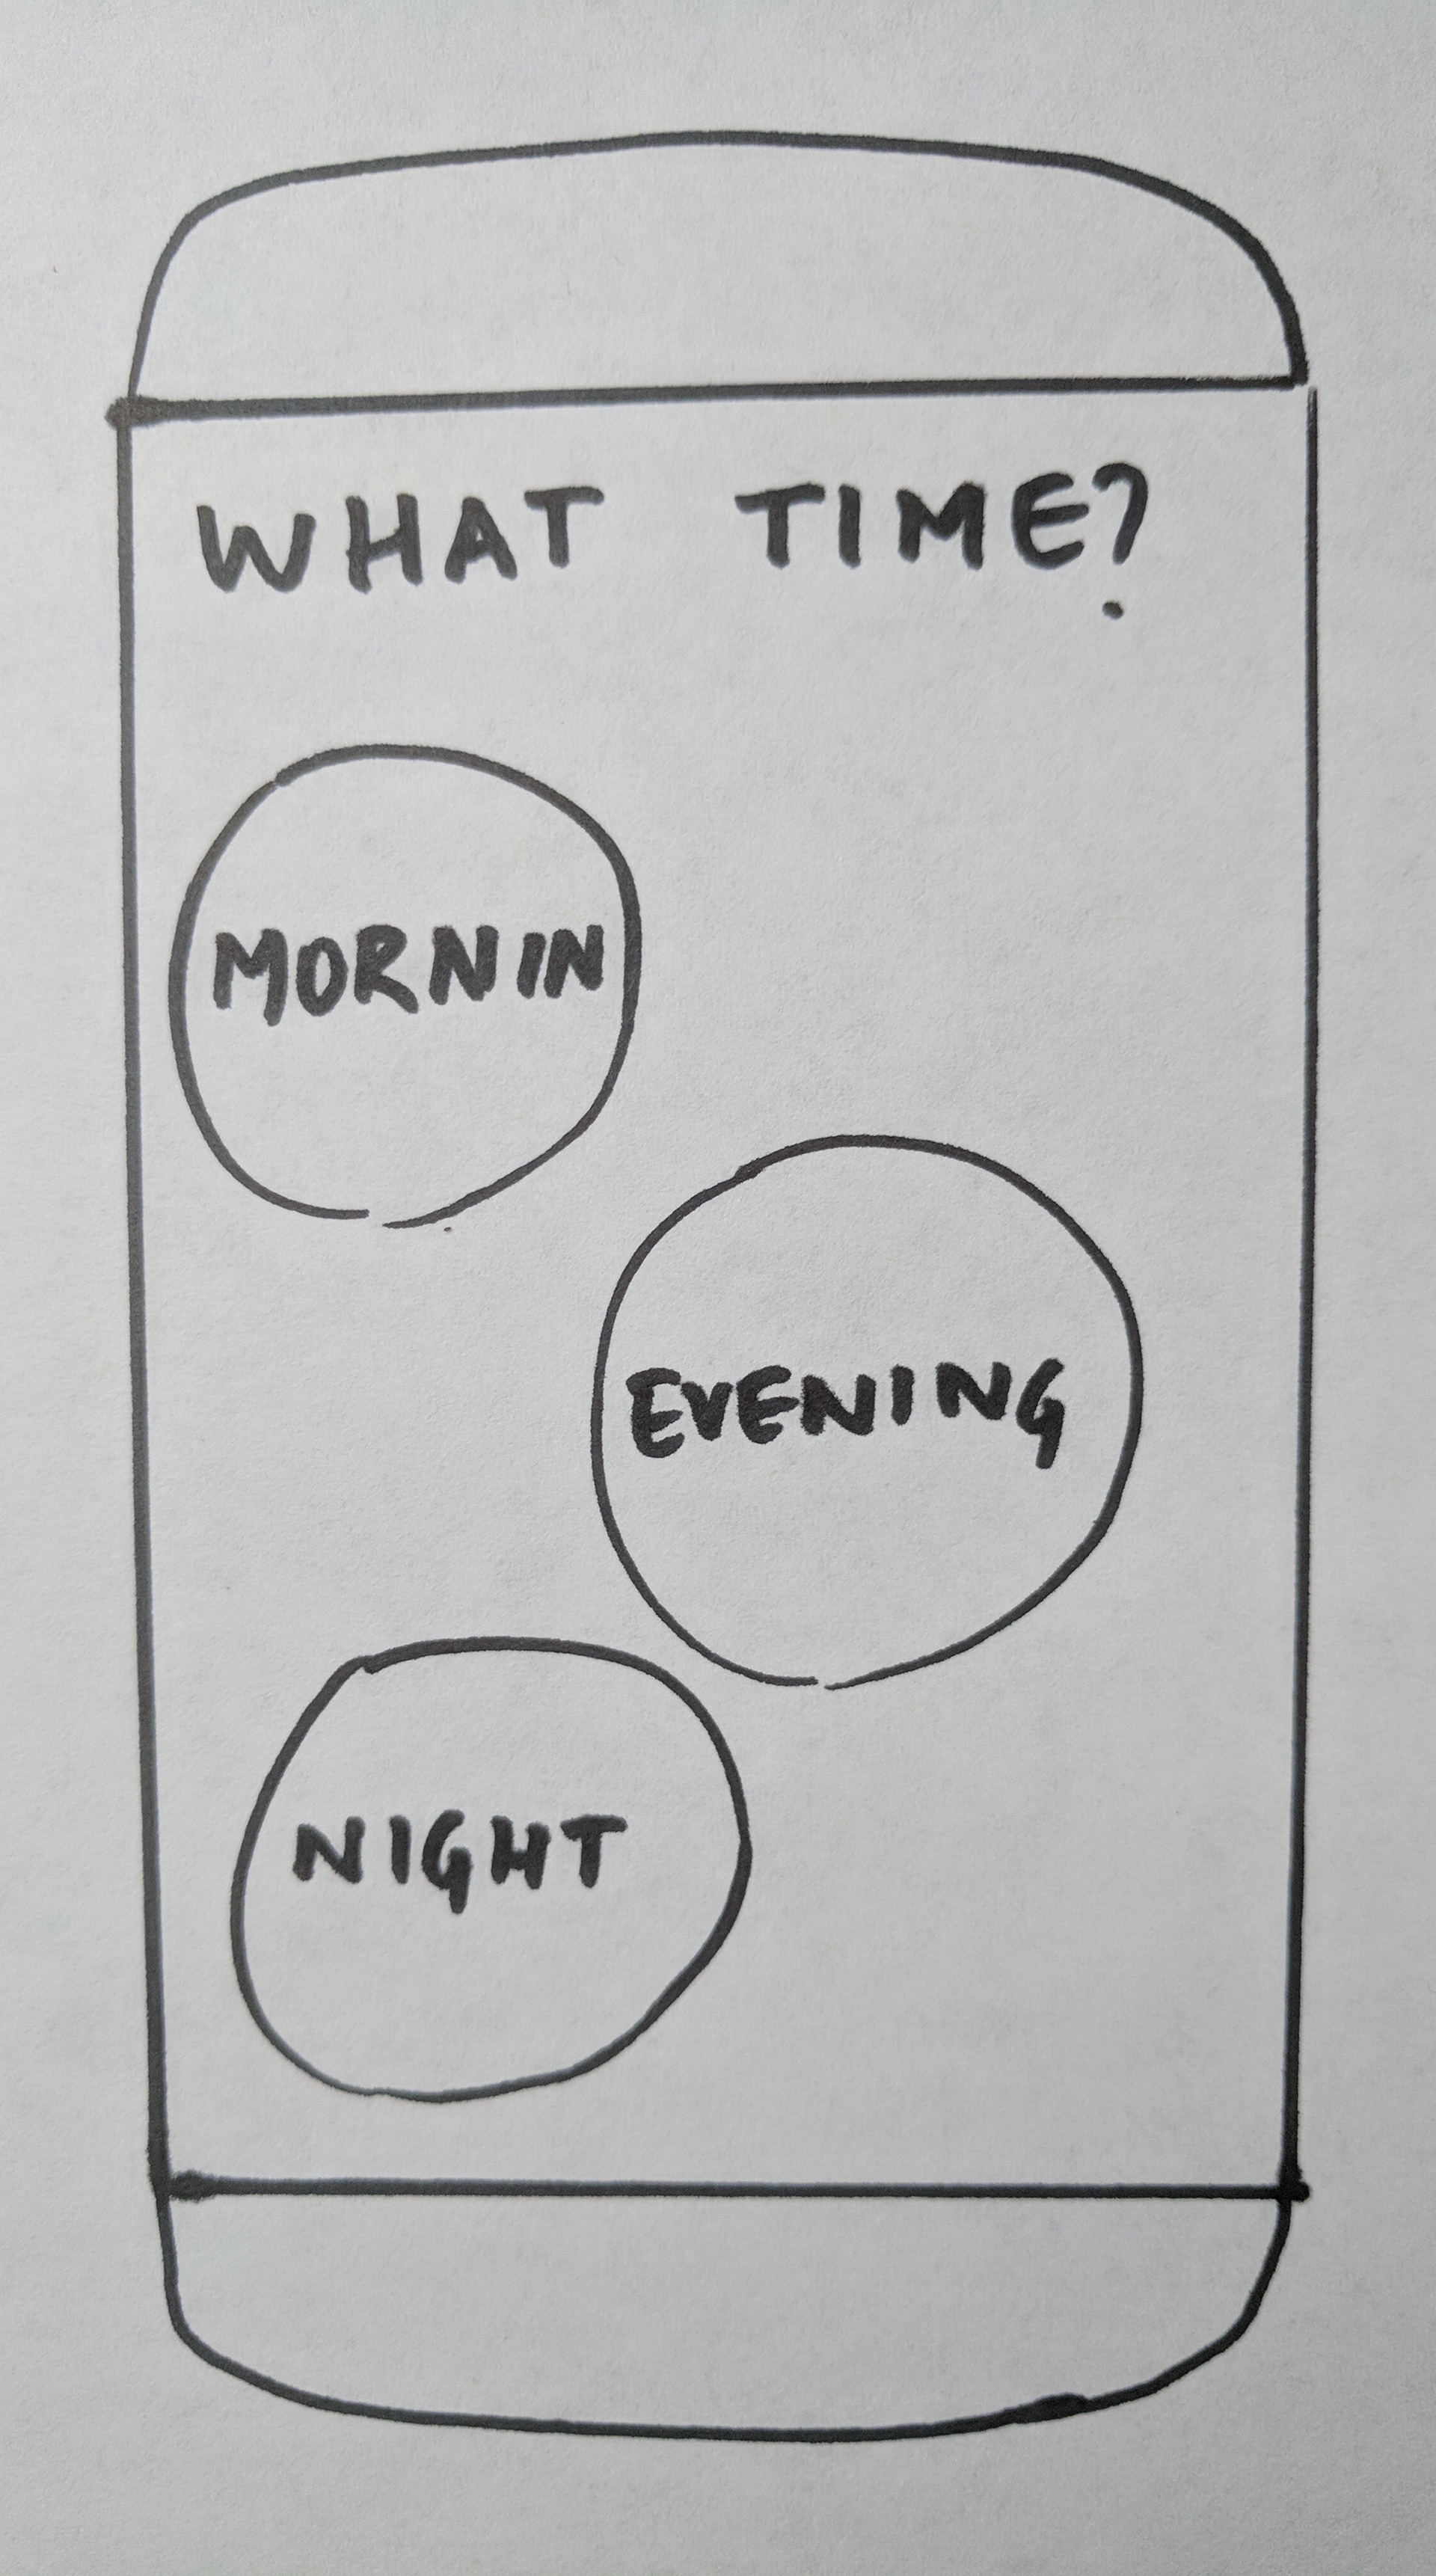 WHAT TIME?
MORNIN
EVENING
NIGHT